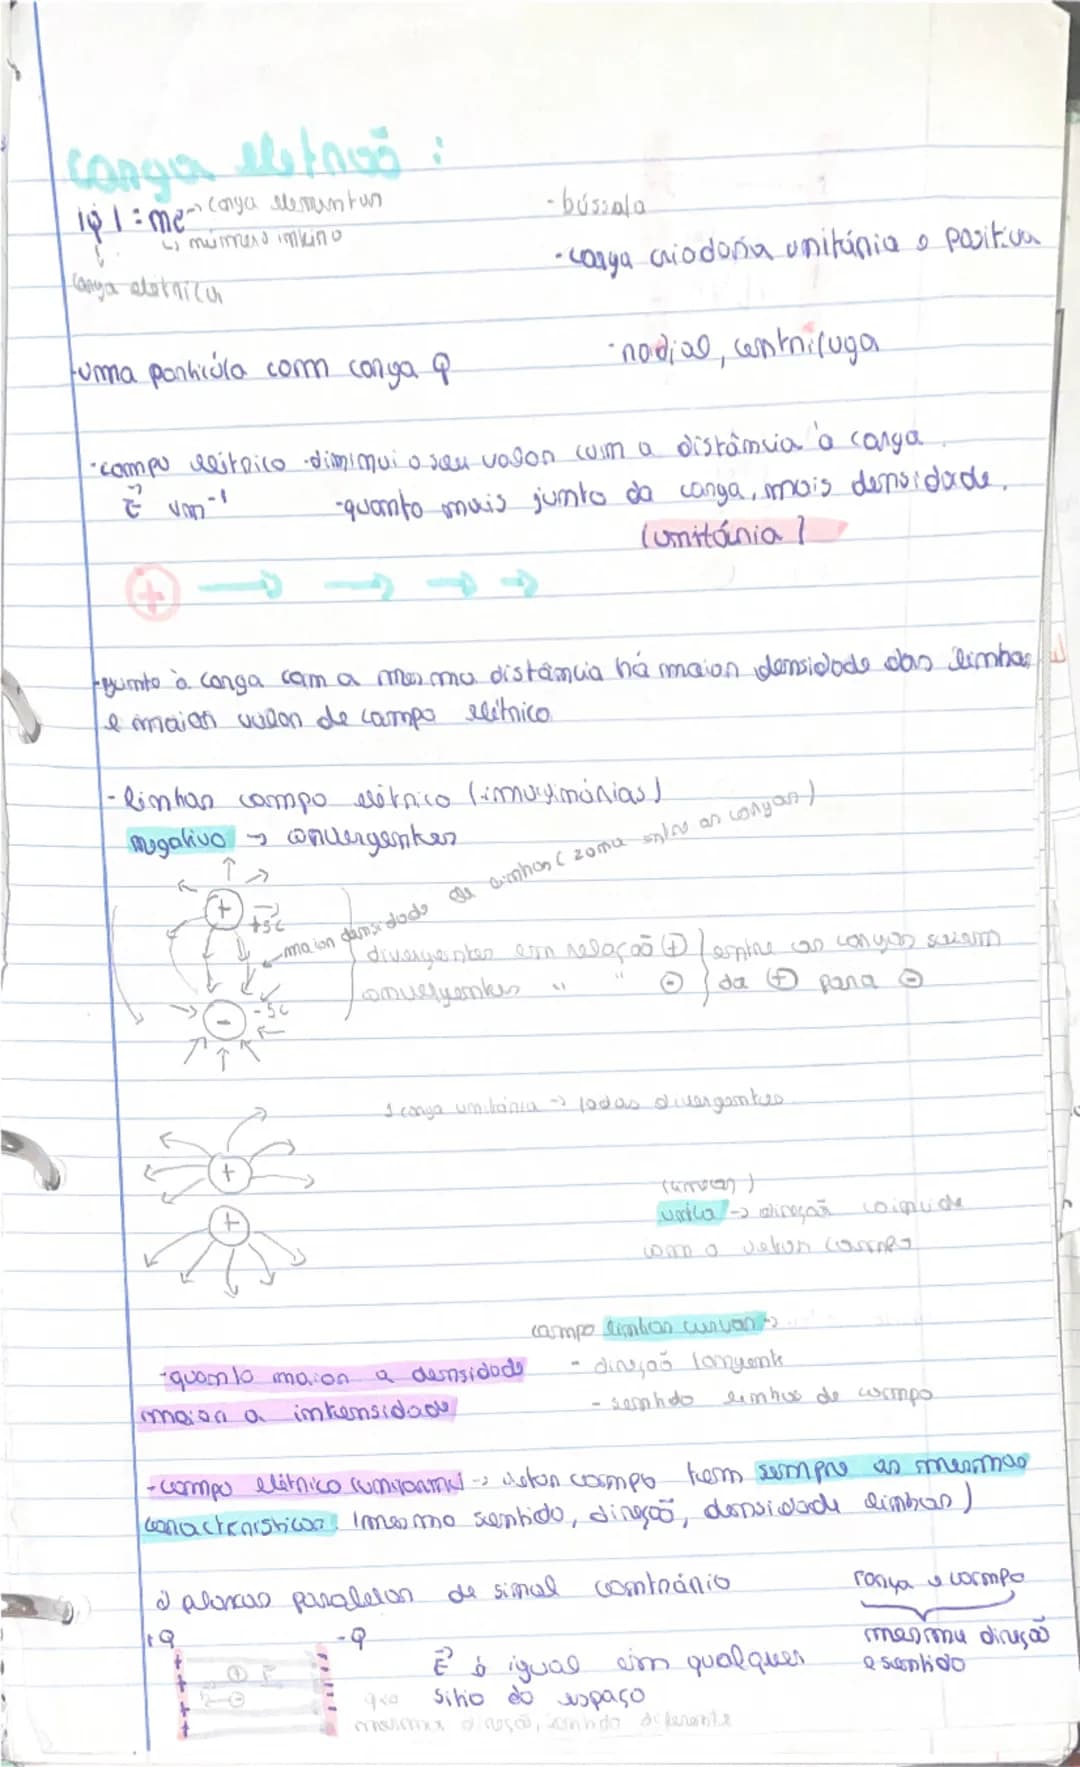 carga elétrica :
|q| = ne → carga elementar
↳ número inteiro
↓
carga elétrica
- bússola
- carga criadora unitária e positiva
- uma partícula com carga Q
- radial, centrífuga
- campo elétrico - diminui o seu valor com a distância à carga.
E⃗ Vm⁻¹ - quanto mais junto da carga, mais densidade.
(unitária)
+ → → → →
- junto à carga com a mesma distância há maior densidade das linhas
e maior valor de campo elétrico
- linhas campo elétrico (imaginárias)
negativo → convergentes
maior densidade de linhas (zona entre as cargas)
+
+5c
divergentes em relação + } entre as cargas saiem
convergentes " " - } da + para -
-
-5c
1 carga unitária → todas divergentes
+
+
→ direção coincide
com o vetor campo
campo linhas curvas →
- direção tangente
- sentido linhas de campo
- quanto maior a densidade
maior a intensidade
- campo elétrico uniforme → vetor campo tem sempre as mesmas
características (mesmo sentido, direção, densidade linhas)
2 placas paralelas de sinal contrário
+Q -Q
E⃗ é igual em qualquer
sítio do espaço
força e campo
mesma direção
e sentido
q<0
mesma direção, sentido diferente